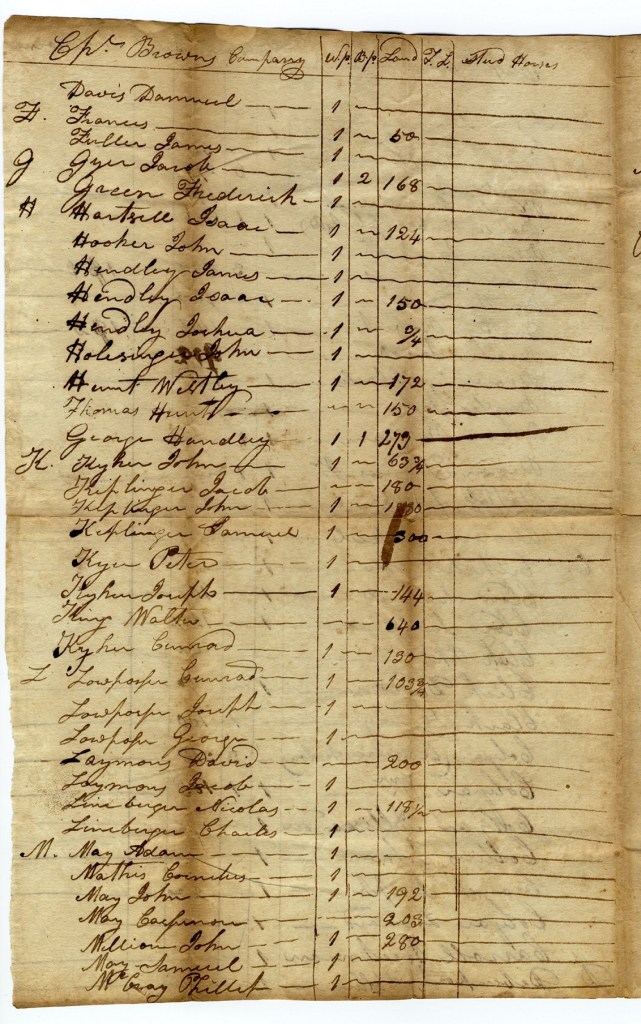 Cpn. Browns Company Wp. Bp. Land T. L. Stud Horses
Davis Dannuel 1
F. Francis
Fuller James 1 50
G Gyer Jacob 1
Green Frederick 1 2 168
H Hartsell Isaac 1
Hooker John 1 124
Hendley James 1
Hendley Isaac 1 150
Hendley Joshua 1 3/4
Holesinger John 1
Hunt Westley 1 172
Thomas Hunt 150
George Handley 1 1 273
K. Kyker John 1 63 3/4
Keplinger Jacob 180
Keplinger John 1
Keplinger Samuel 1 300
Kyer Peter 1
Kyker Joseph 1 144
King Walter 640
Kyker Conrad 1 130
L Conrad 1 103 3/4
Joseph 1
George 1
Laymons David 200
Laymons Jacob 1
Lineberger Nicolas 1 118 1/2
Lineberger Charles 1
M. May Adam 1
Mathis Cornelius 1
May John 1 192
May 203
Million John 1 280
May Samuel 1
McCray Phillip 1